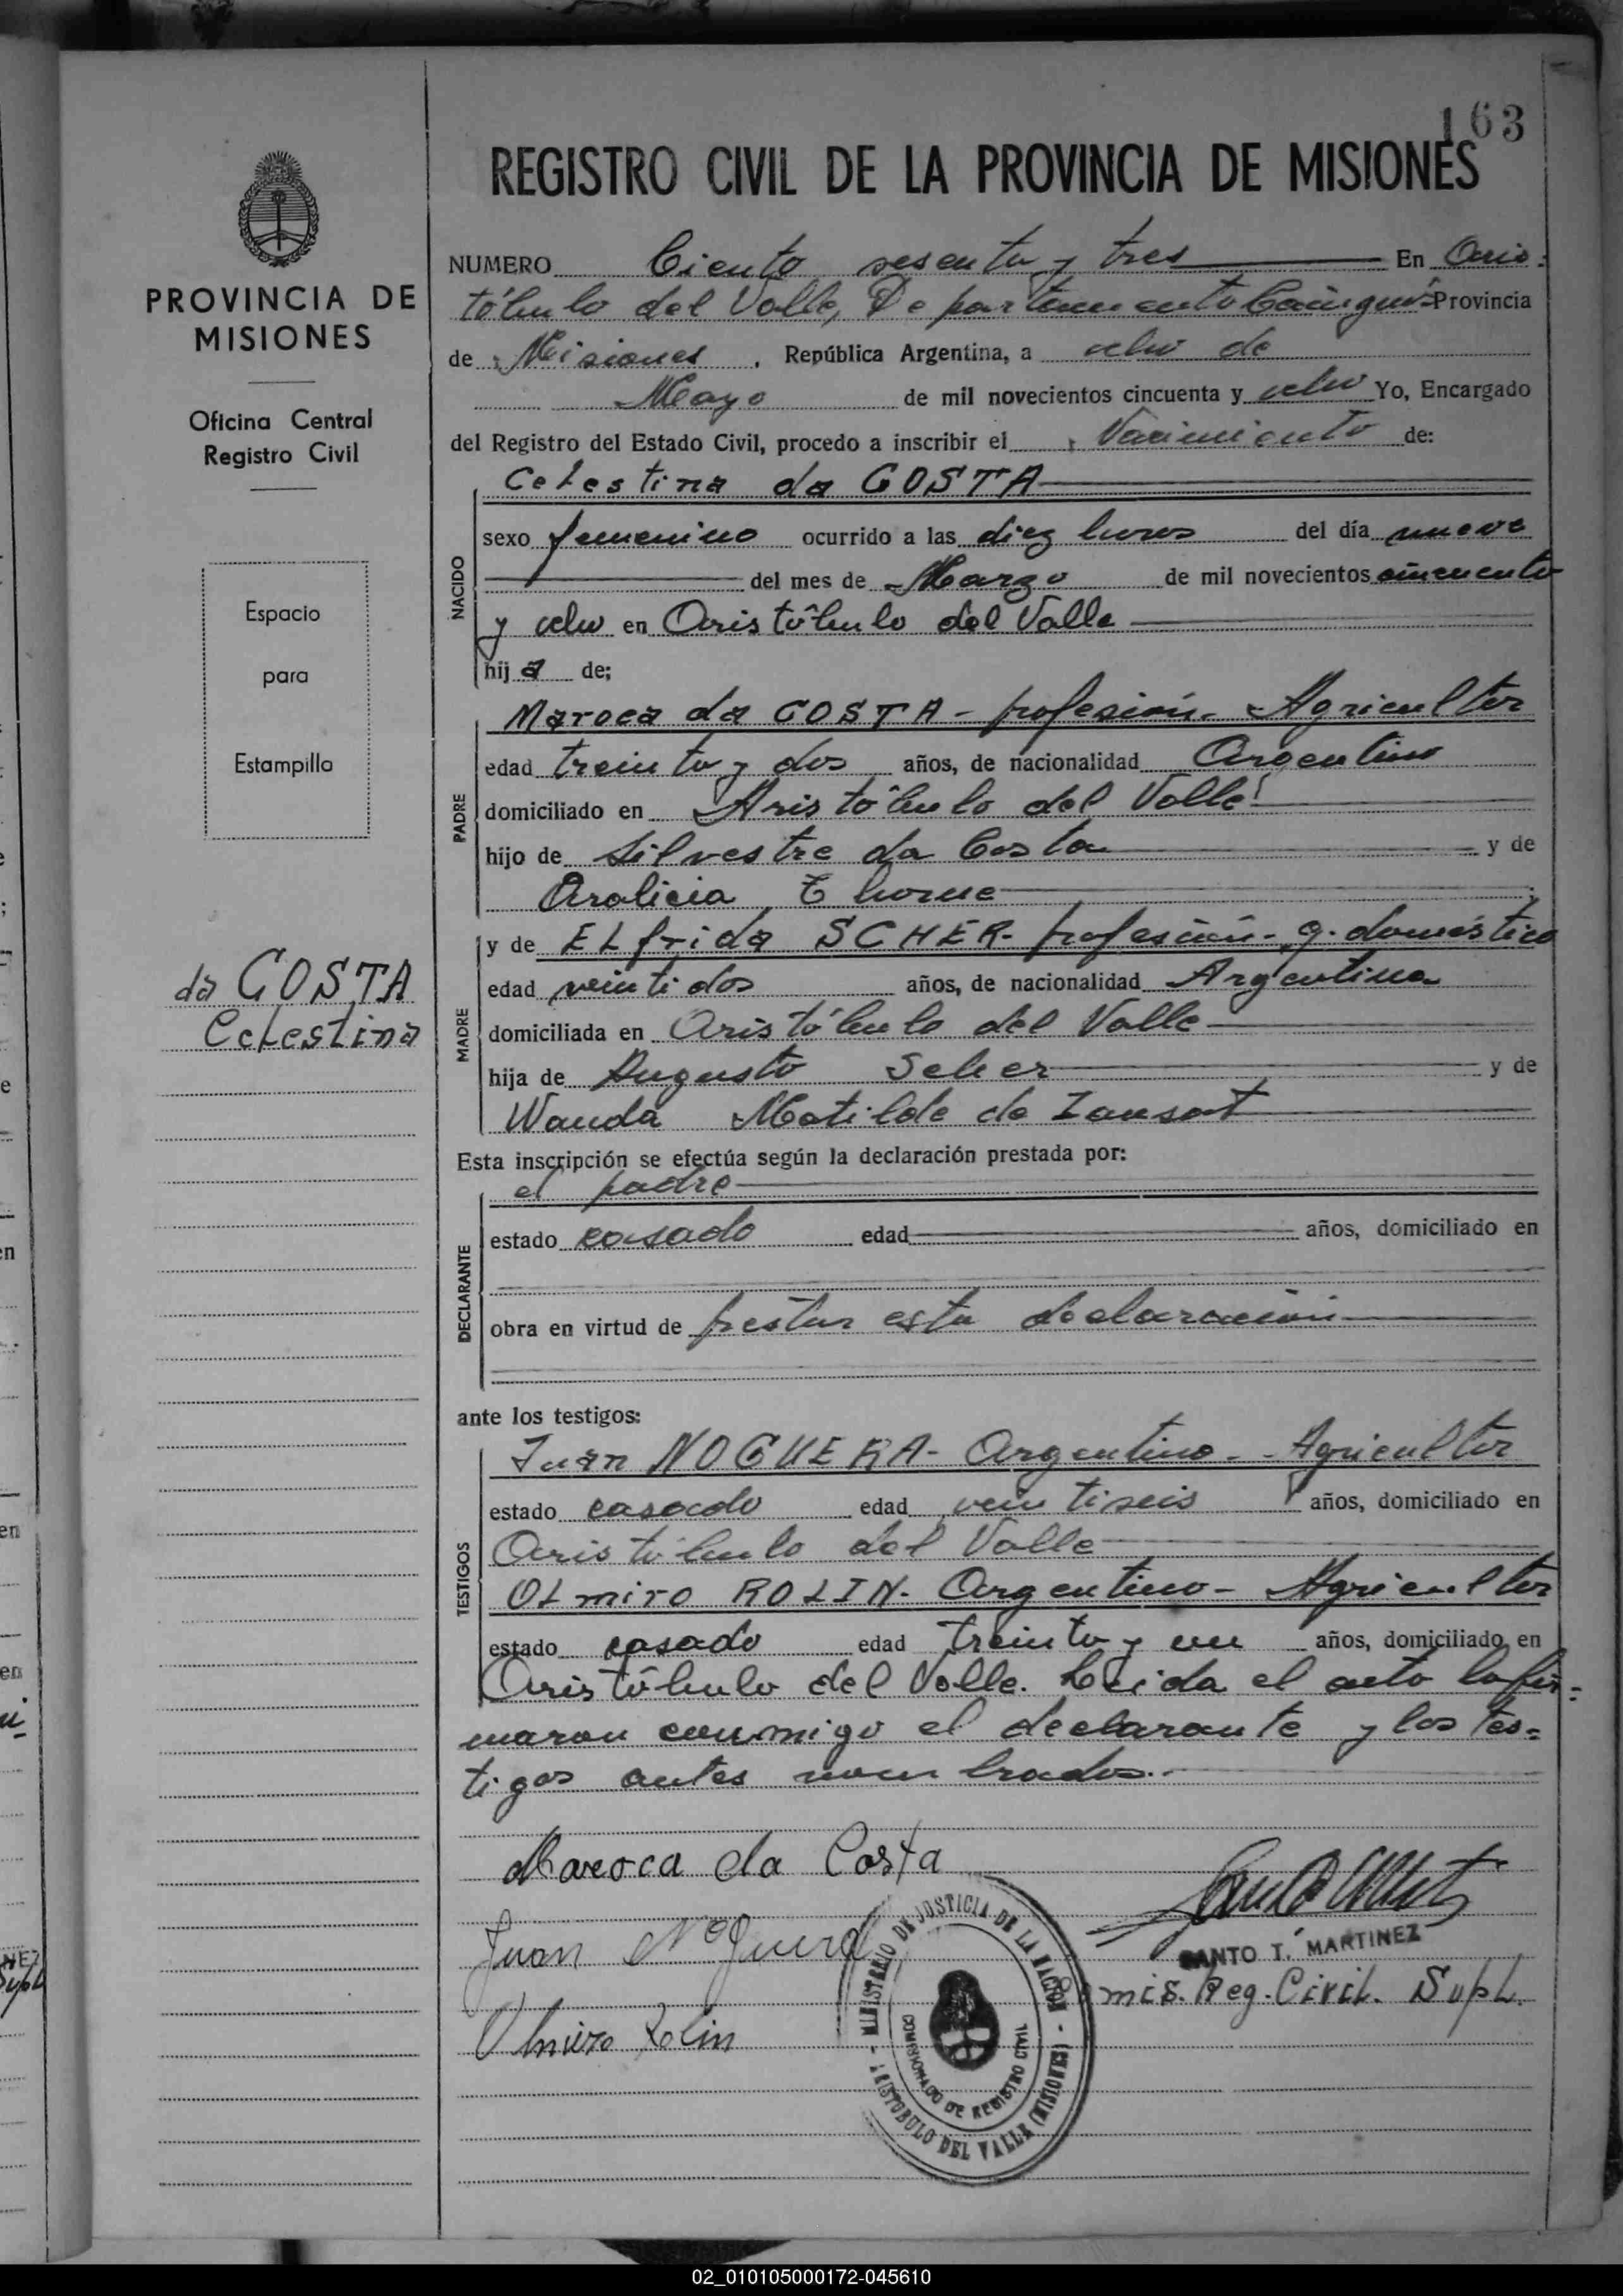 163
REGISTRO CIVIL DE LA PROVINCIA DE MISIONES
PROVINCIA DE
MISIONES
Oficina Central
Registro Civil
Espacio
para
Estampilla
da COSTA
Celestina
NUMERO Ciento sesenta y tres En Aris=
tóbulo del Valle, Departamento Cainguás Provincia
de Misiones, República Argentina, a ocho de
Mayo de mil novecientos cincuenta y ocho Yo, Encargado
del Registro del Estado Civil, procedo a inscribir el Nacimiento de:
Celestina da COSTA
NACIDO
sexo femenino ocurrido a las diez horas del día nueve
del mes de Marzo de mil novecientos cincuenta
y ocho en Aristóbulo del Valle
hija de;
PADRE
Maroca da COSTA - profesión - Agricultor
edad treinta y dos años, de nacionalidad Argentino
domiciliado en Aristóbulo del Valle
hijo de Silvestre da Costa y de
Thorne
MADRE
y de Elfrida SCHER - profesión - q. doméstico
edad veintidos años, de nacionalidad Argentina
domiciliada en Aristóbulo del Valle
hija de Augusto Scher y de
Wanda Matilde de
Esta inscripción se efectúa según la declaración prestada por:
DECLARANTE
el padre
estado casado edad años, domiciliado en
obra en virtud de prestar esta declaración
ante los testigos:
TESTIGOS
Juan NOGUERA - Argentino - Agricultor
estado casado edad veintiseis años, domiciliado en
Aristóbulo del Valle
Olmiro ROLIN - Argentino - Agricultor
estado casado edad treinta y un años, domiciliado en
Aristóbulo del Valle. Leida el acta la fir=
maron conmigo el declarante y los tes=
tigos antes nombrados.-
Maroca da Costa
Juan Noguera
Olmiro Rolin
SANTO T. MARTINEZ
mis. Reg. Civil. Supl.
MINISTERIO DE JUSTICIA DE LA NACION - ARISTOBULO DEL VALLE (MISIONES) -
COMISIONADO DE REGISTRO CIVIL
02_010105000172-045610